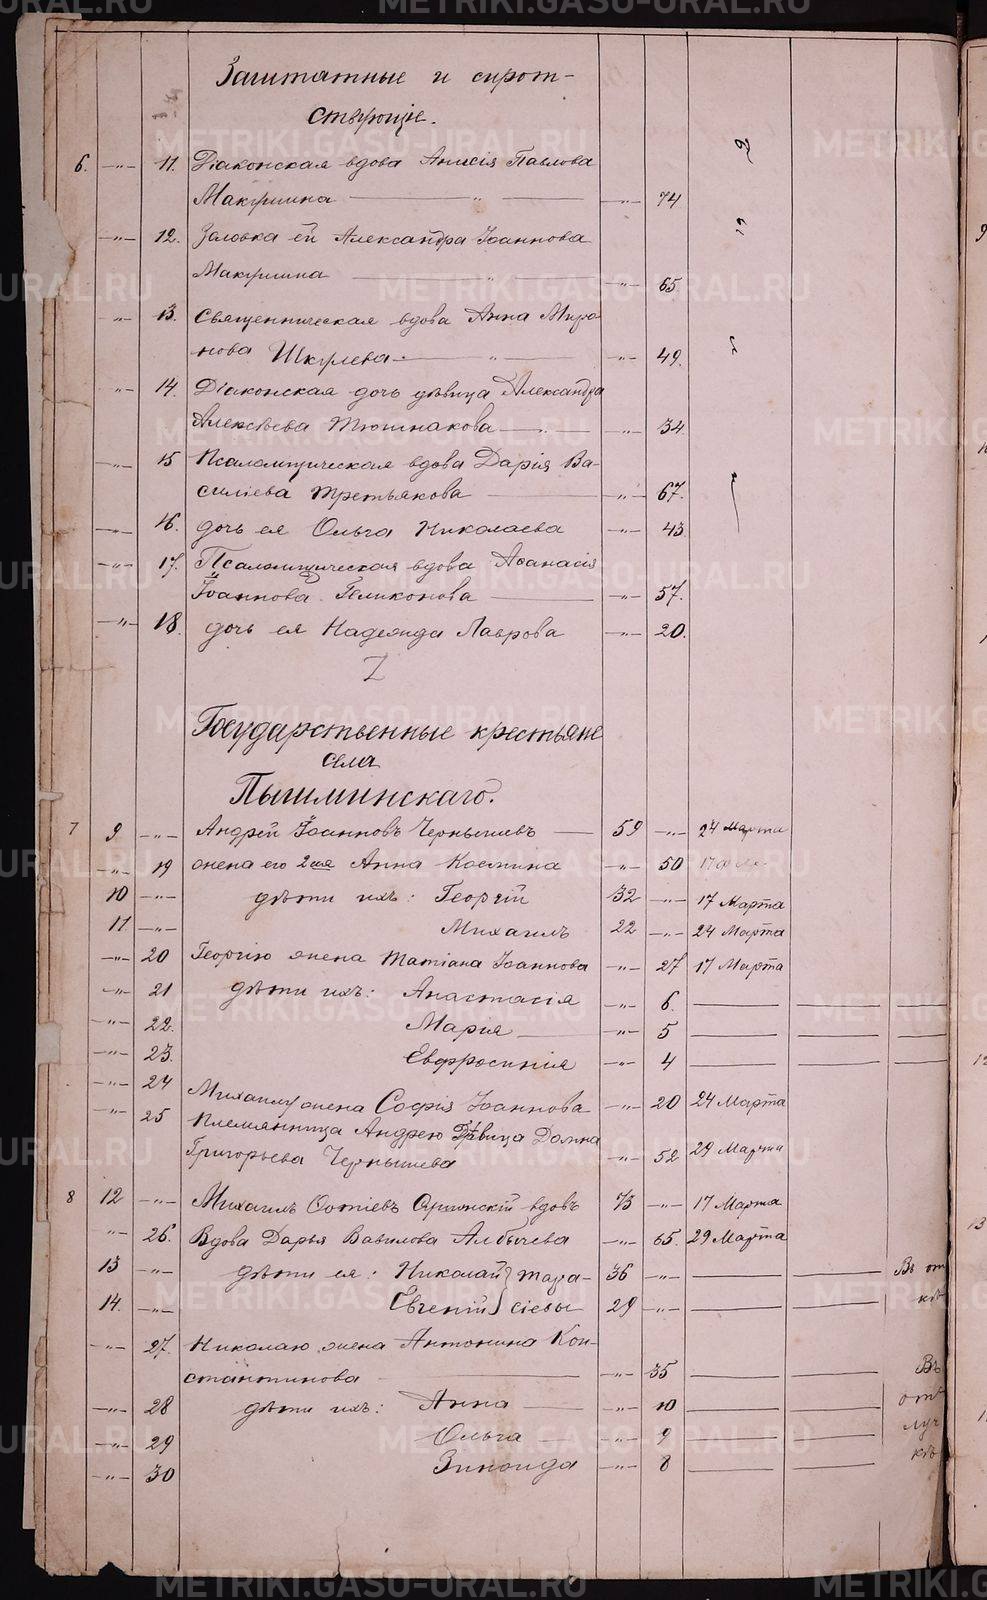 Заштатные и сирот-
ствующіе.
6. —„— 11. Діаконская вдова Анисія Павлова
Макушина — „ — —„— 74
—„— 12. Золовка ей Александра Іоаннова
Макушина — „ — —„— 65
—„— 13. Священническая вдова Анна Миро-
нова Шкулева — „ — —„— 49.
—„— 14. Діаконская дочь дѣвица Александра
Алексѣева Тюшнакова — „ — —„— 34
—„— 15 Псаломщическая вдова Дарія Ва-
силіева Третьякова — —„— 67.
—„— 16. дочь ея Ольга Николаева —„— 43
—„— 17. Псаломщическая вдова Аѳанасія
Іоаннова Геликонова — —„— 57.
—„— 18. дочь ея Надежда Лаврова —„— 20.
Государственные крестьяне
села
Пышминскаго.
7 9 —„— Андрей Іоанновъ Чернышевъ — 59 —„— 24 Марта
—„— 19 жена его 2ая Анна Космина —„— 50 17
10 —„— дѣти ихъ: Георгій 32 —„— 17 Марта
11 —„— Михаилъ 22 —„— 24 Марта
—„— 20 Георгію жена Татіана Іоаннова —„— 27 17 Марта
—„— 21 дѣти ихъ: Анастасія —„— 6. — —
—„— 22. Марія — —„— 5 — — —
—„— 23. Евфросинія —„— 4 — — —
—„— 24 Михаилу жена Софія Іоаннова —„— 20 24 Марта
—„— 25 Племянница Андрею Дѣвица Домна
Григорьева Чернышева —„— 52 29 Марта
8 12 —„— Михаилъ Фотіевъ вдовъ 73 —„— 17 Марта
—„— 26. Вдова Дарья Вавилова Албычева —„— 65. 29 Марта
13 —„— дѣти ея: Николай } Тара- 36 —„— — — Въ от
14. —„— Евгеній } сіевы 29 —„— — —
—„— 27. Николаю жена Антонина Кон-
стантинова — —„— 35 — — Въ
—„— 28 дѣти ихъ: Анна — —„— 10 — — отъ
—„— 29 Ольга —„— 9 — — луч
—„— 30 Зиноида —„— 8 — — кѣ
METRIKI.GASO-URAL.RU